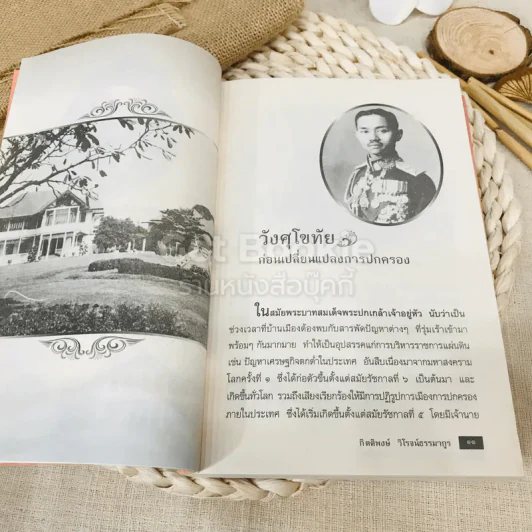 วังศุโขทัย
ก่อนเปลี่ยนแปลงการปกครอง
ในสมัยพระบาทสมเด็จพระปกเกล้าเจ้าอยู่หัว นับว่าเป็น
ช่วงเวลาที่บ้านเมืองต้องพบกับสารพัดปัญหาต่างๆ ที่รุมเร้าเข้ามา
พร้อมๆ กันมากมาย ทำให้เป็นอุปสรรคแก่การบริหารราชการแผ่นดิน
เช่น ปัญหาเศรษฐกิจตกต่ำในประเทศ อันสืบเนื่องมาจากมหาสงคราม
โลกครั้งที่ ๑ ซึ่งได้ก่อตัวขึ้นตั้งแต่สมัยรัชกาลที่ ๖ เป็นต้นมา และ
เกิดขึ้นทั่วโลก รวมถึงเสียงเรียกร้องให้มีการปฏิรูปการเมืองการปกครอง
ภายในประเทศ ซึ่งได้เริ่มเกิดขึ้นตั้งแต่สมัยรัชกาลที่ ๕ โดยมีเจ้านาย
กิตติพงษ์ วิโรจน์ธรรมากูร
๑๑
ร้านหนังสือบุ๊คกี้